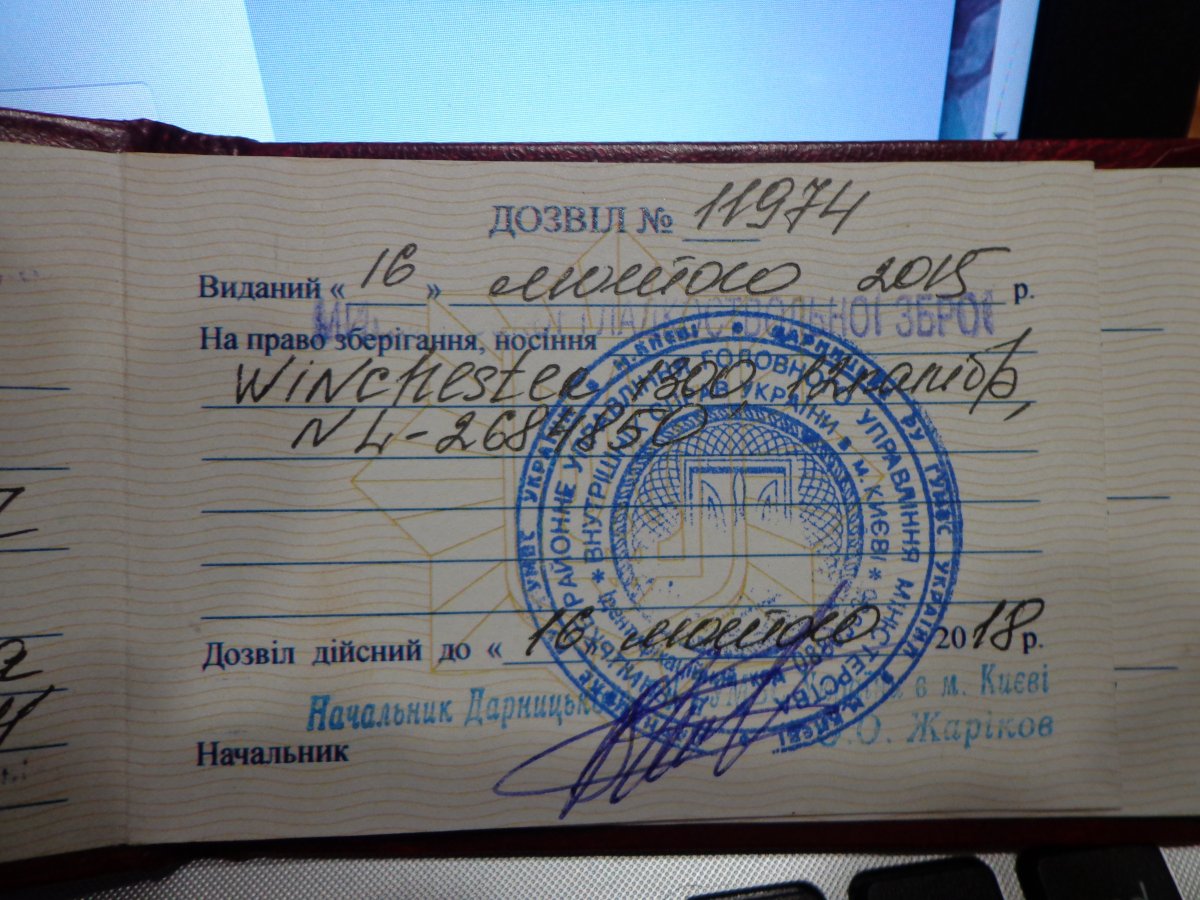 ДОЗВІЛ № 11974
Виданий « 16 » лютого 2015 р.
ГЛАДКОСТВОЛЬНОЇ ЗБРОЇ
На право зберігання, носіння
Winchester 1300, 12 калібр,
N L-
Дозвіл дійсний до « 16 лютого 2018 р.
Начальник Дарницького в м. Києві
О. Жаріков
Начальник
ДАРНИЦЬКЕ РУ ГУМВС УКРАЇНИ в м. КИЄВІ
РАЙОННЕ УПРАВЛІННЯ ГОЛОВНОГО УПРАВЛІННЯ МІНІСТЕРСТВА
ВНУТРІШНІХ СПРАВ УКРАЇНИ в м. КИЄВІ *
Ідентифікаційний код